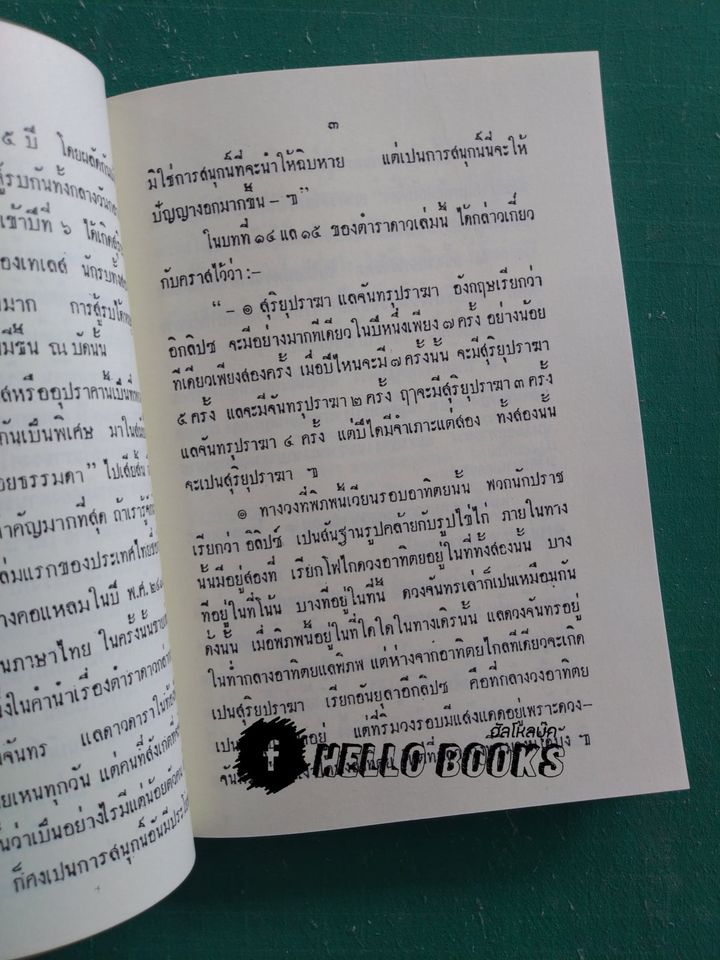 ๕ ปี โดยผลัดกัน
สู้รบกันทั้งกลางวันกลาง
เข้าปีที่ ๖ ได้เกิดสุริ
ของเทเลส นักรบทั้งส
มาก การสู้รบได้
มีขึ้น ณ บัดนั้น
สหรืออุปราคานี้เป็นที่
กันเป็นพิเศษ มาในสมัย
อยธรรมดา" ไปเสียสิ้น
สำคัญมากที่สุด ถ้าเรารู้
เล่มแรกของประเทศไทยที่
บางคอแหลมในปี พ.ศ.
ในภาษาไทย ในครั้งนั้น
ซึ่งในคำนำเรื่องตำราดาวกล่าว
จันทร แลดาวดาราในท้อง
เหนทุกวัน แต่คนที่สังเกต
ว่าเป็นอย่างไรมีแต่น้อยตัว
ก็คงเปนการสนุกนิ์อันมีประโ
๓
มิใช่การสนุกนิ์ที่จะนำให้ฉิบหาย แต่เปนการสนุกนิ์นี่จะให้
ปัญญางอกมากขึ้น – ฯ"
ในบทที่ ๑๔ แล ๑๕ ของตำราดาวเล่มนี้ ได้กล่าวเกี่ยว
กับคราสไว้ว่า :–
"– ๑ สุริยุปราฆา แลจันทรุปราฆา อังกฤษเรียกว่า
อิกลิปซ จะมีอย่างมากทีเดียวในปีหนึ่งเพียง ๗ ครั้ง อย่างน้อย
ทีเดียวเพียงสองครั้ง เมื่อปีไหนจะมี ๗ ครั้งนั้น จะมีสุริยุปราฆา
๕ ครั้ง แลจะมีจันทรุปราฆา ๒ ครั้ง ฤๅจะมีสุริยุปราฆา ๓ ครั้ง
แลจันทรุปราฆา ๔ ครั้ง แต่ปีใดมีจำเภาะแต่สอง ทั้งสองนั้น
จะเปนสุริยุปราฆา ฯ
๑ ทางวงที่พิภพนี้เวียนรอบอาทิตยนั้น พวกนักปราช
เรียกว่า อิลิปซ์ เปนสันฐานรูปคล้ายกับรูปไข่ไก่ ภายในทาง
นั้นมีอยู่สองที่ เรียกโฟไกดวงอาทิตยอยู่ในที่ทั้งสองนั้น บาง
ทีอยู่ในที่โน้น บางที่อยู่ในที่นี้ ดวงจันทรเล่าก็เปนเหมือนกัน
ดั่งนั้น เมื่อพิภพนี้อยู่ในที่ใดใดในทางเดิรนั้น แลดวงจันทรอยู่
ในท่ำกลางอาทิตยแลพิภพ แต่ห่างจากอาทิตยไกลทีเดียวจะเกิด
เปนสุริยุปราฆา เรียกอันยุลาอีกลิปซ คือที่กลางวงอาทิตย
เปน อยู่ แต่ที่ริมวงรอบมีแสงแดดอยู่เพราะดวง–
จัน บัง ฯ
ฮัลโหลบุ๊ค
f HELLO BOOKS